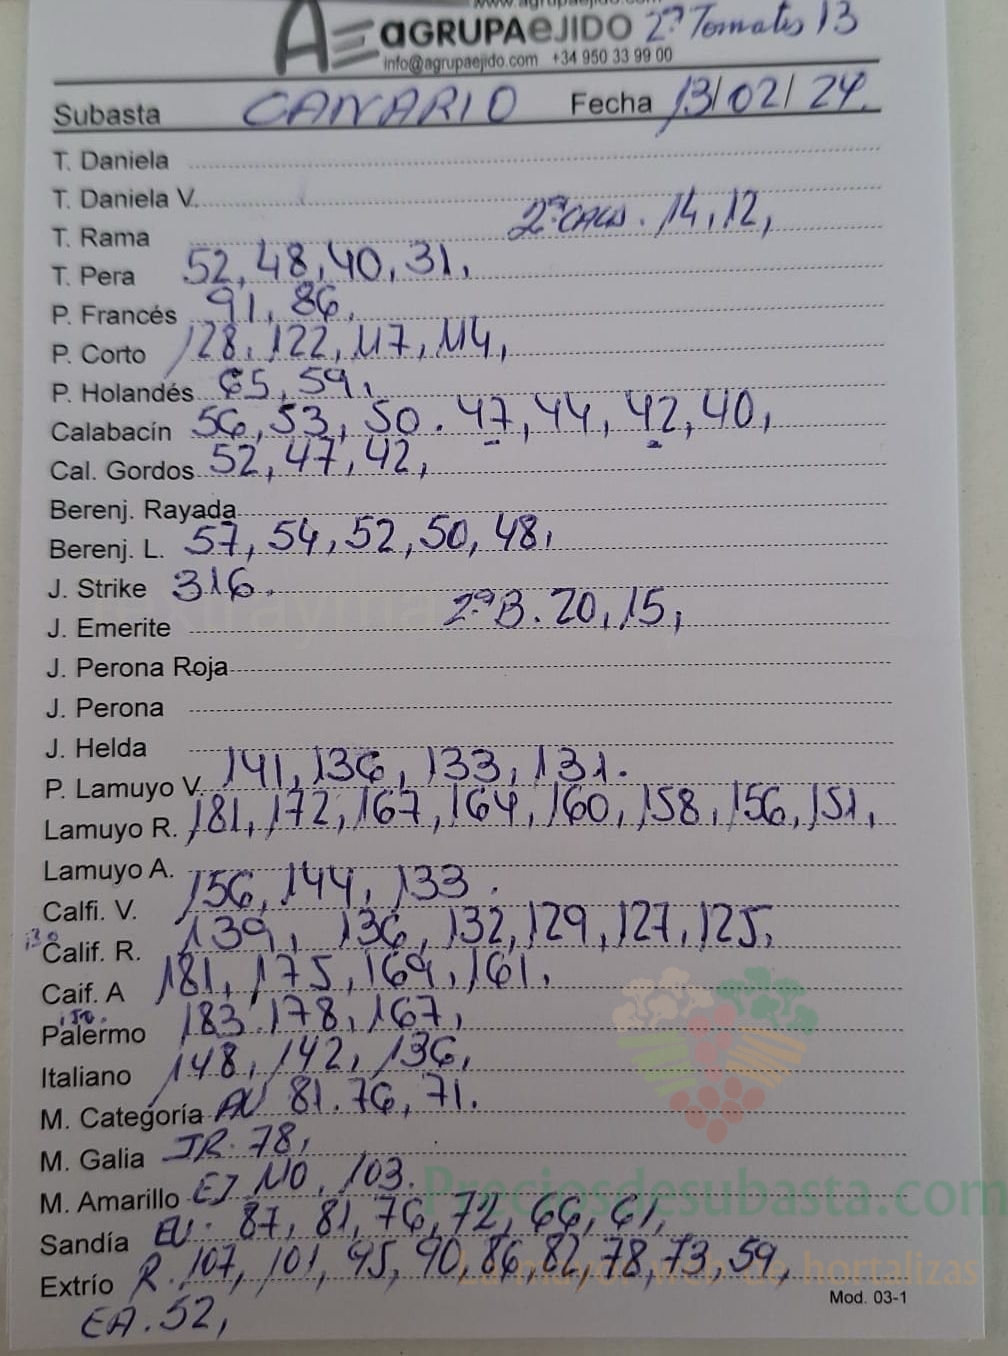 www.agrupaejido.com
AGRUPAEJIDO 2ª Tomates 13
info@agrupaejido.com +34 950 33 99 00
Subasta CANARIO Fecha 13/02/24.
T. Daniela
T. Daniela V.
T. Rama 2ª CALA. 14, 12,
T. Pera 52, 48, 40, 31,
P. Francés 91, 86,
P. Corto 128, 122, 117, 114,
P. Holandés 65, 59,
Calabacín 56, 53, 50. 47, 44, 42, 40,
Cal. Gordos 52, 47, 42,
Berenj. Rayada
Berenj. L. 57, 54, 52, 50, 48,
J. Strike 316.
J. Emerite 2ª B. 20, 15,
J. Perona Roja
J. Perona
J. Helda
P. Lamuyo V. 141, 136, 133, 131.
Lamuyo R. 181, 172, 167, 164, 160, 158, 156, 151,
Lamuyo A.
Calfi. V. 156, 144, 133.
130 Calif. R. 139, 136, 132, 129, 127, 125,
Caif. A 181, 175, 169, 161,
150.
Palermo 183. 178, 167,
Italiano 148, 142, 136,
M. Categoría AV 81. 76, 71.
M. Galia JR. 78,
M. Amarillo EJ 110, 103.
Preciosdesubasta.com
Sandía EU. 87, 81, 76, 72, 66, 61,
Extrío R. 107, 101, 95, 90, 86, 82, 78, 73, 59,
La mayor web de hortalizas
Mod. 03-1
EA. 52,